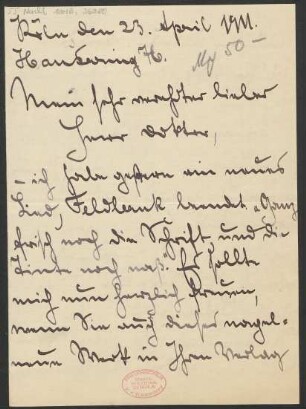 Köln den 23. April 1911.
Hansaring
My 50 –
Mein sehr verehrter lieber
Herr Doktor,
– ich habe gestern ein neues
Lied, Feldbank beendt. „Ganz
frisch noch die Schrift, und die
Tinte noch naß.“ Es sollte
mich nun herzlich freuen,
wenn Sie auch dieses nagel-
neue Werk in Ihren Verlag